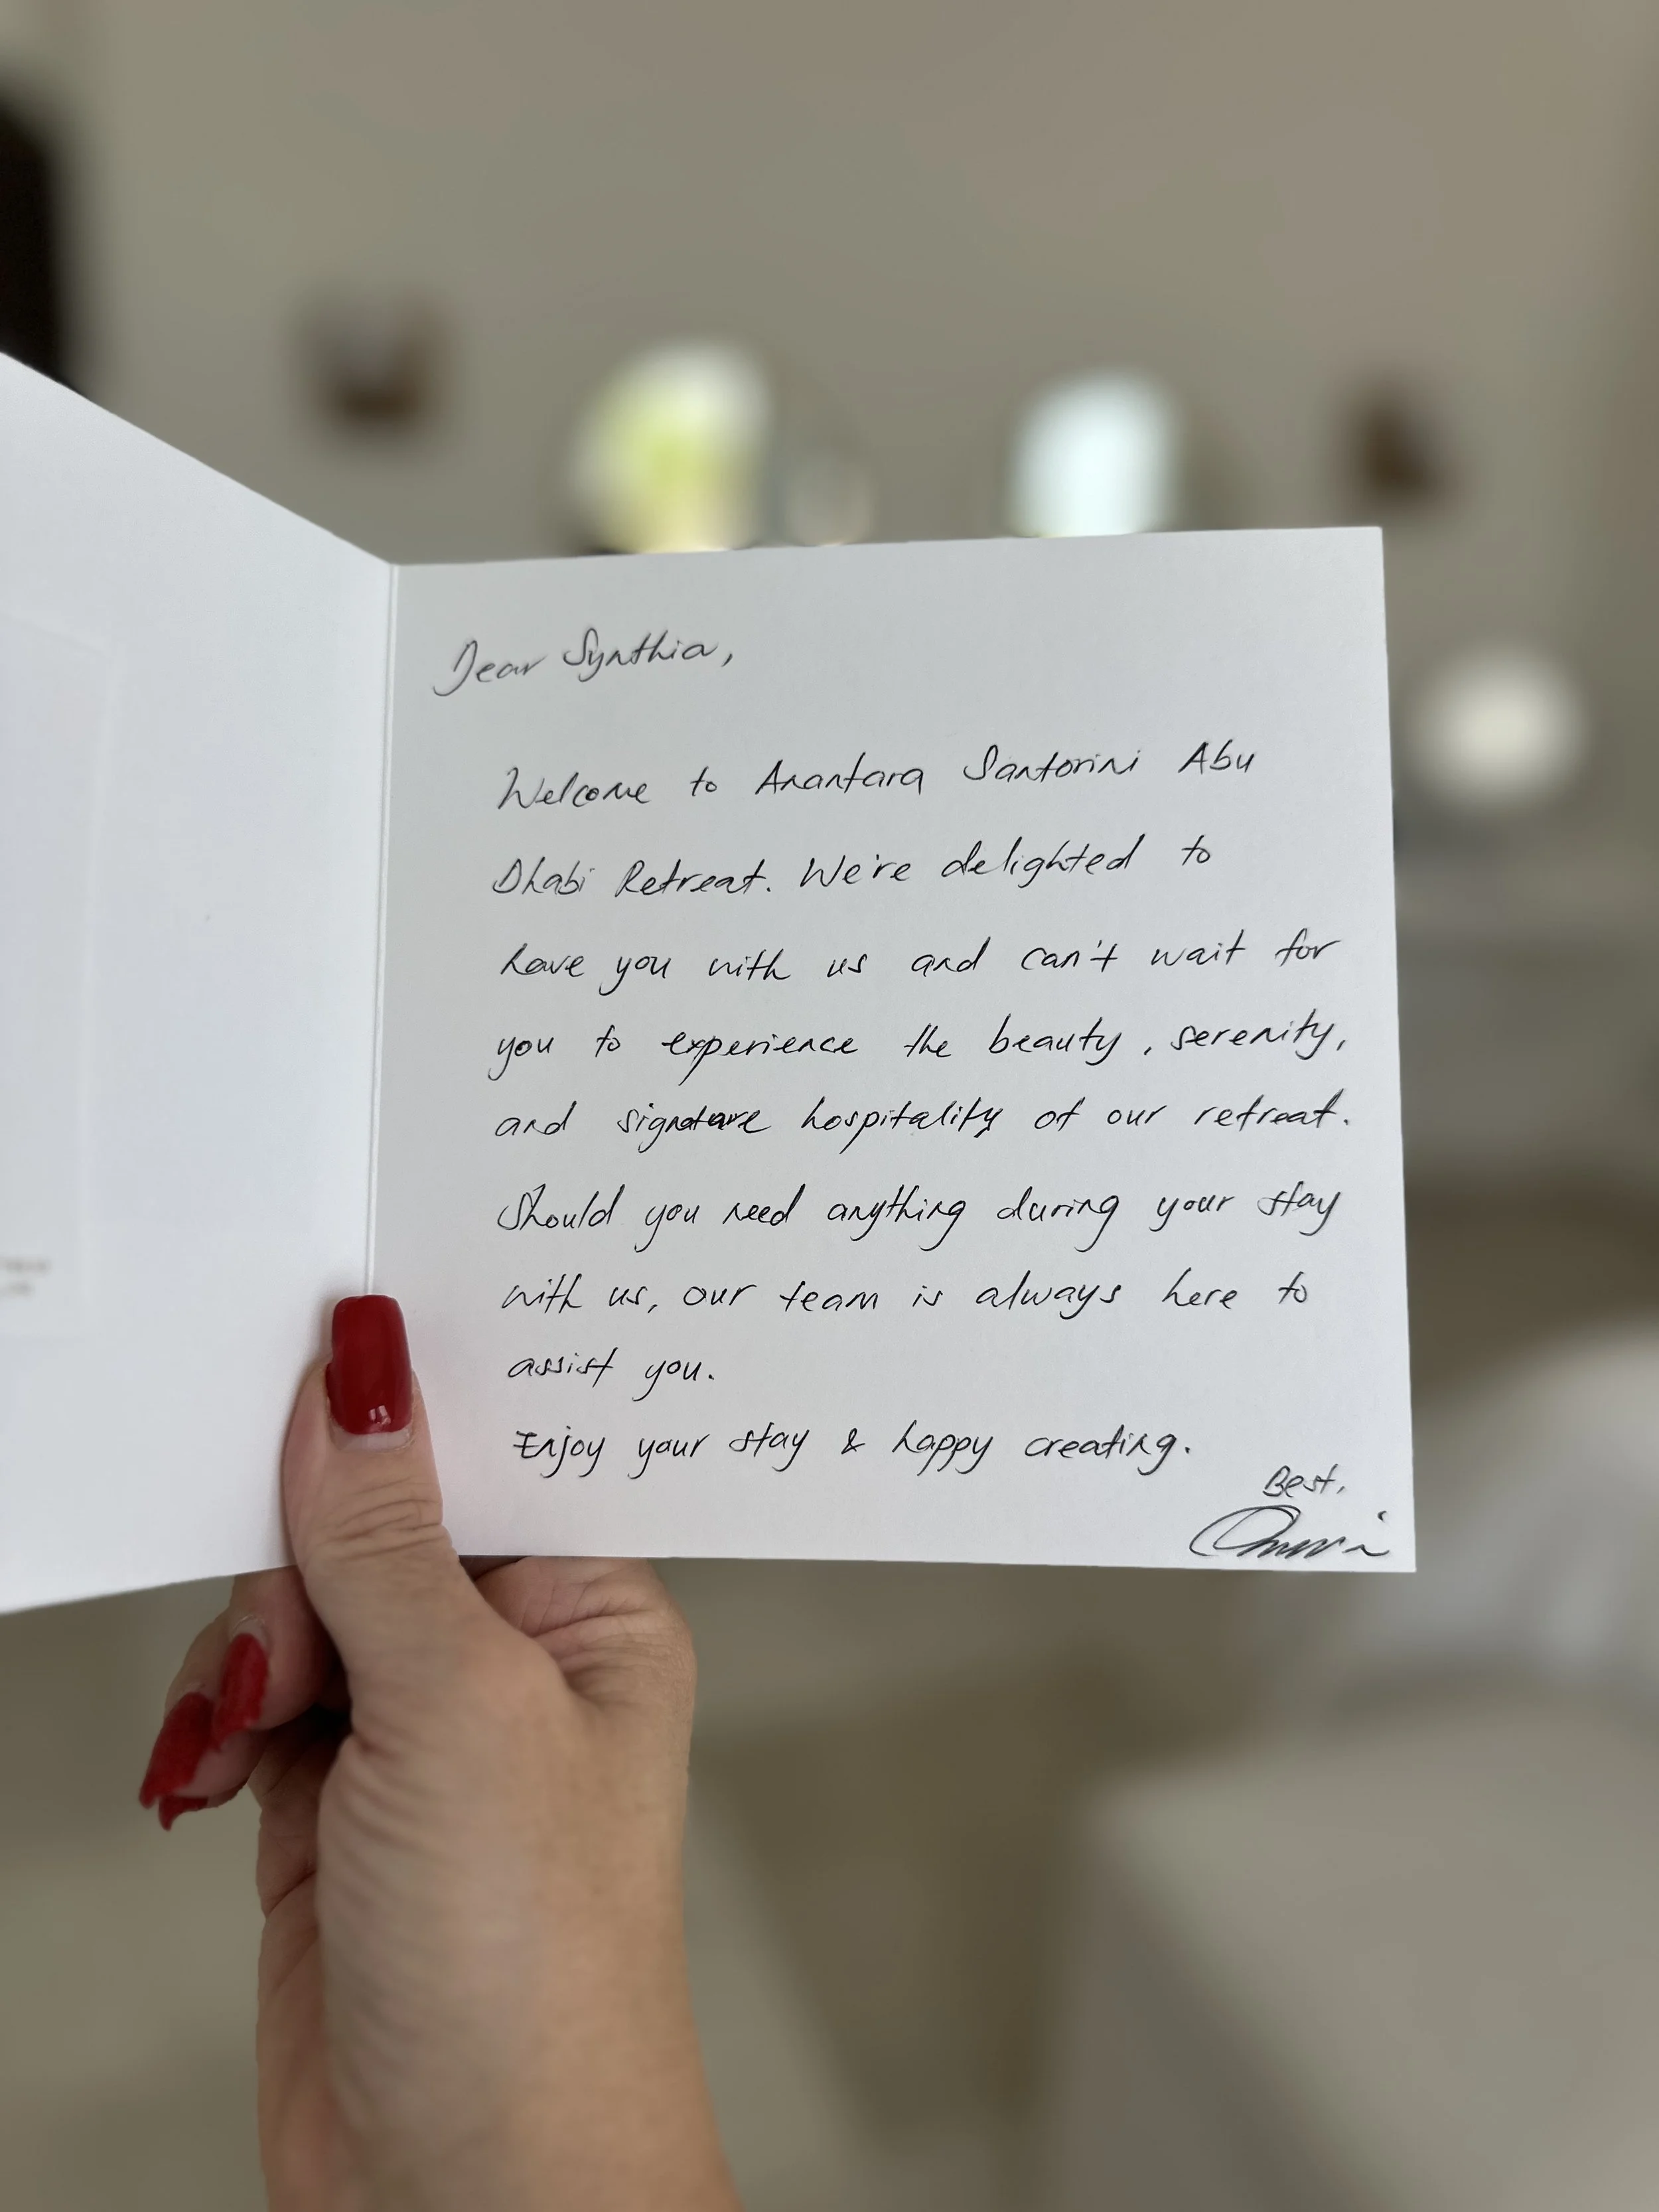 Dear Synthia,
Welcome to Anantara Santorini Abu
Dhabi Retreat. We're delighted to
have you with us and can't wait for
you to experience the beauty, serenity,
and signature hospitality of our retreat.
Should you need anything during your stay
with us, our team is always here to
assist you.
Enjoy your stay & happy creating.
Best,